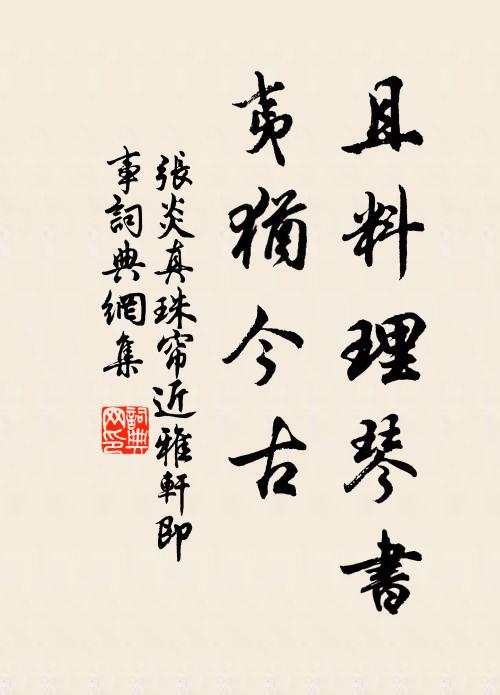 且料理琴書
夷猶今古
張炎真珠帘近雅軒即
事詞典網集
詞典
网印